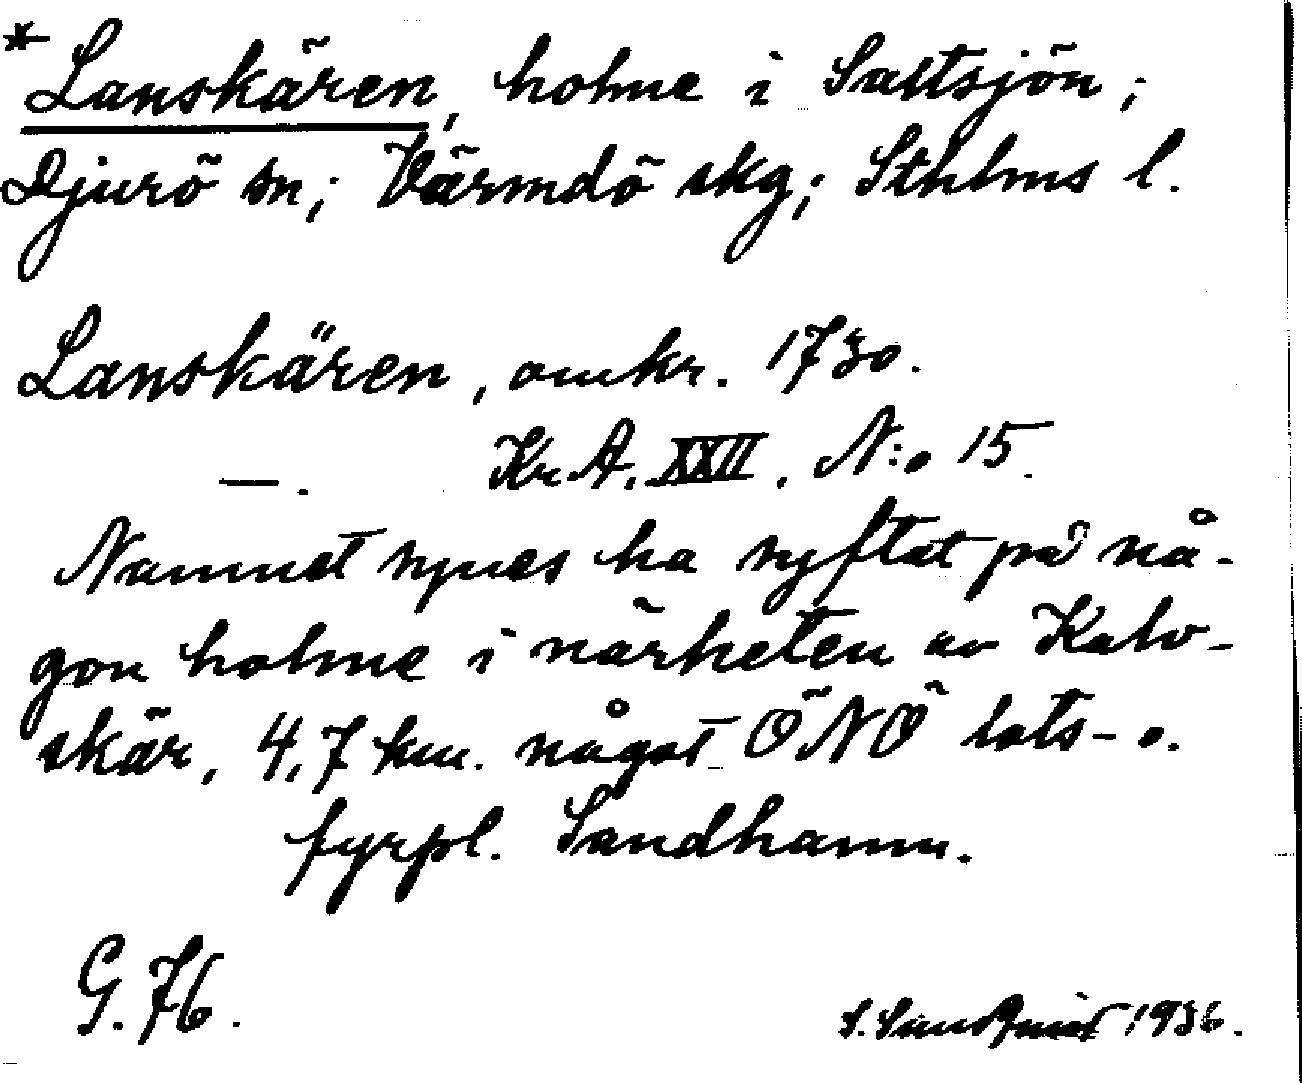 *Lanskären, holme i Saltsjön;
Djurö sn; Värmdö skg; Sthlms l.
Lanskären, omkr. 1730.
—. Kr. A. XXII. N:o 15.
Namnet synes ha syftat på nå-
gon holme i närheten av Kalv-
skär, 4,7 km. något ÖNÖ lots- o.
fyrpl. Sandhamn.
G. 76.
S. 1936.